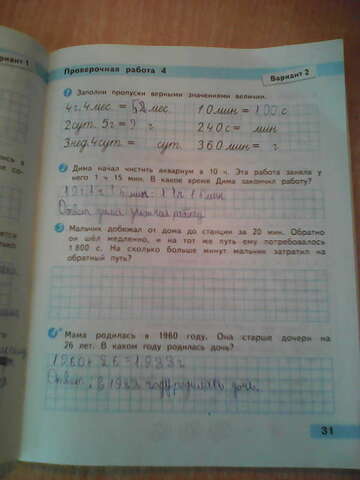 Вариант 1
Проверочная работа 4
Вариант 2
1 Заполни пропуски верными значениями величин.
4г.4мес. = 52мес. 10мин = 100с
2сут. 5г = ? г 240с = мин
3нед.4сут = сут. 360мин = г
2 Дима начал чистить аквариум в 10 ч. Эта работа заняла
у него 1 ч 15 мин. В какое время Дима закончил работу?
Ответ дима
работу
3 Мальчик добежал от дома до станции за 20 мин. Обратно
он шёл медленно, и на тот же путь ему потребовалось
1800 с. На сколько больше минут мальчик затратил на
обратный путь?
4* Мама родилась в 1960 году. Она старше дочери на
26 лет. В каком году родилась дочь?
1960+26=1983г
Ответ: в 1983 году родилась дочь.
31